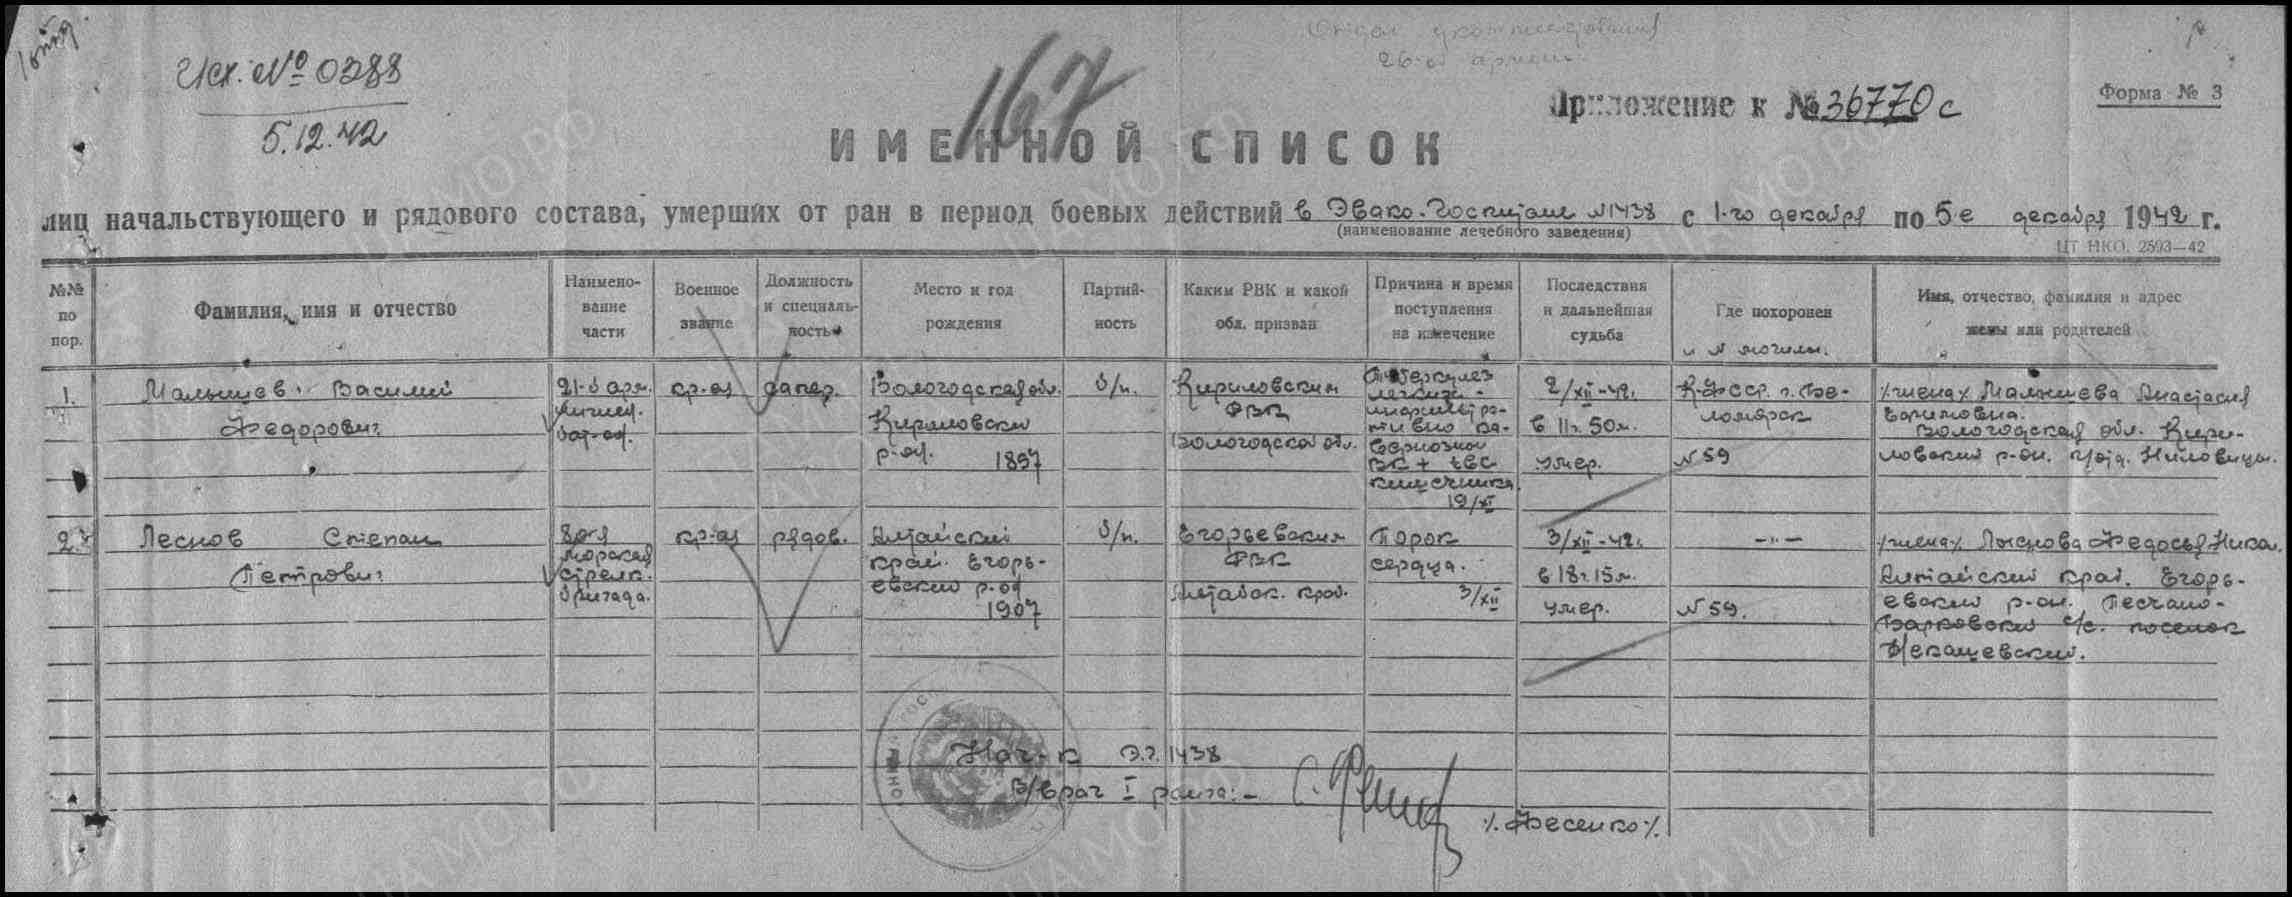 Исх. № 0388
5.12.42
167
Отдел укомплектования
26-ой армии
Приложение к № 36770 с
Форма № 3
ИМЕННОЙ СПИСОК
лиц начальствующего и рядового состава, умерших от ран в период боевых действий в Эвако-Госпитале №1438 с 1-го декабря по 5-е декабря 1942 г.
(наименование лечебного заведения)
ЦТ НКО. 2593—42
№№ по пор.
Фамилия, имя и отчество
Наименование части
Военное звание
Должность и специальность
Место и год рождения
Партийность
Каким РВК и какой обл. призван
Причина и время поступления на излечение
Последствия и дальнейшая судьба
Где похоронен и № могилы.
Имя, отчество, фамилия и адрес жены или родителей
1. Малышев Василий
Федорович
21-й арм.
инжен.
бат-он.
кр-ец
сапер.
Вологодская обл.
Кирилловский
р-он. 1897
б/п.
Кирилловским
РВК
Вологодской обл.
Туберкулез
легких
BK + tbc
кишечника.
19/XI
2/XII-42г.
в 11ч. 50м.
умер.
К-ФССР. г. Бе-
ломорск
№ 59
/жена/ Малышева Анастасия
Вологодская обл. Кири-
ловский р-он.
2. Леснов Степан
Петрович
80-я
морская
стрелк.
бригада.
кр-ец
рядов.
Алтайский
край. Егорь-
евский р-он
1907
б/п.
Егорьевским
РВК
Алтайск. край.
Порок
сердца.
3/XII
3/XII-42г.
в 18ч. 15м.
умер.
—"—
№ 59.
/жена/ Леснова Федосья Никол.
Алтайский край. Егорь-
евский р-он. Песчано-
Борковский с/с. поселок
Нач-к Э.Г. 1438
В/врач I ранга:—
/. Фесенко /.
ЦА МО РФ